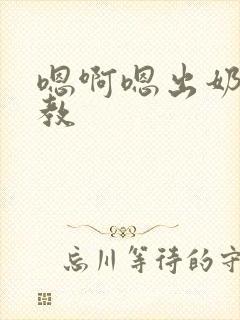 嗯啊嗯出奶
教
忘川等待的守